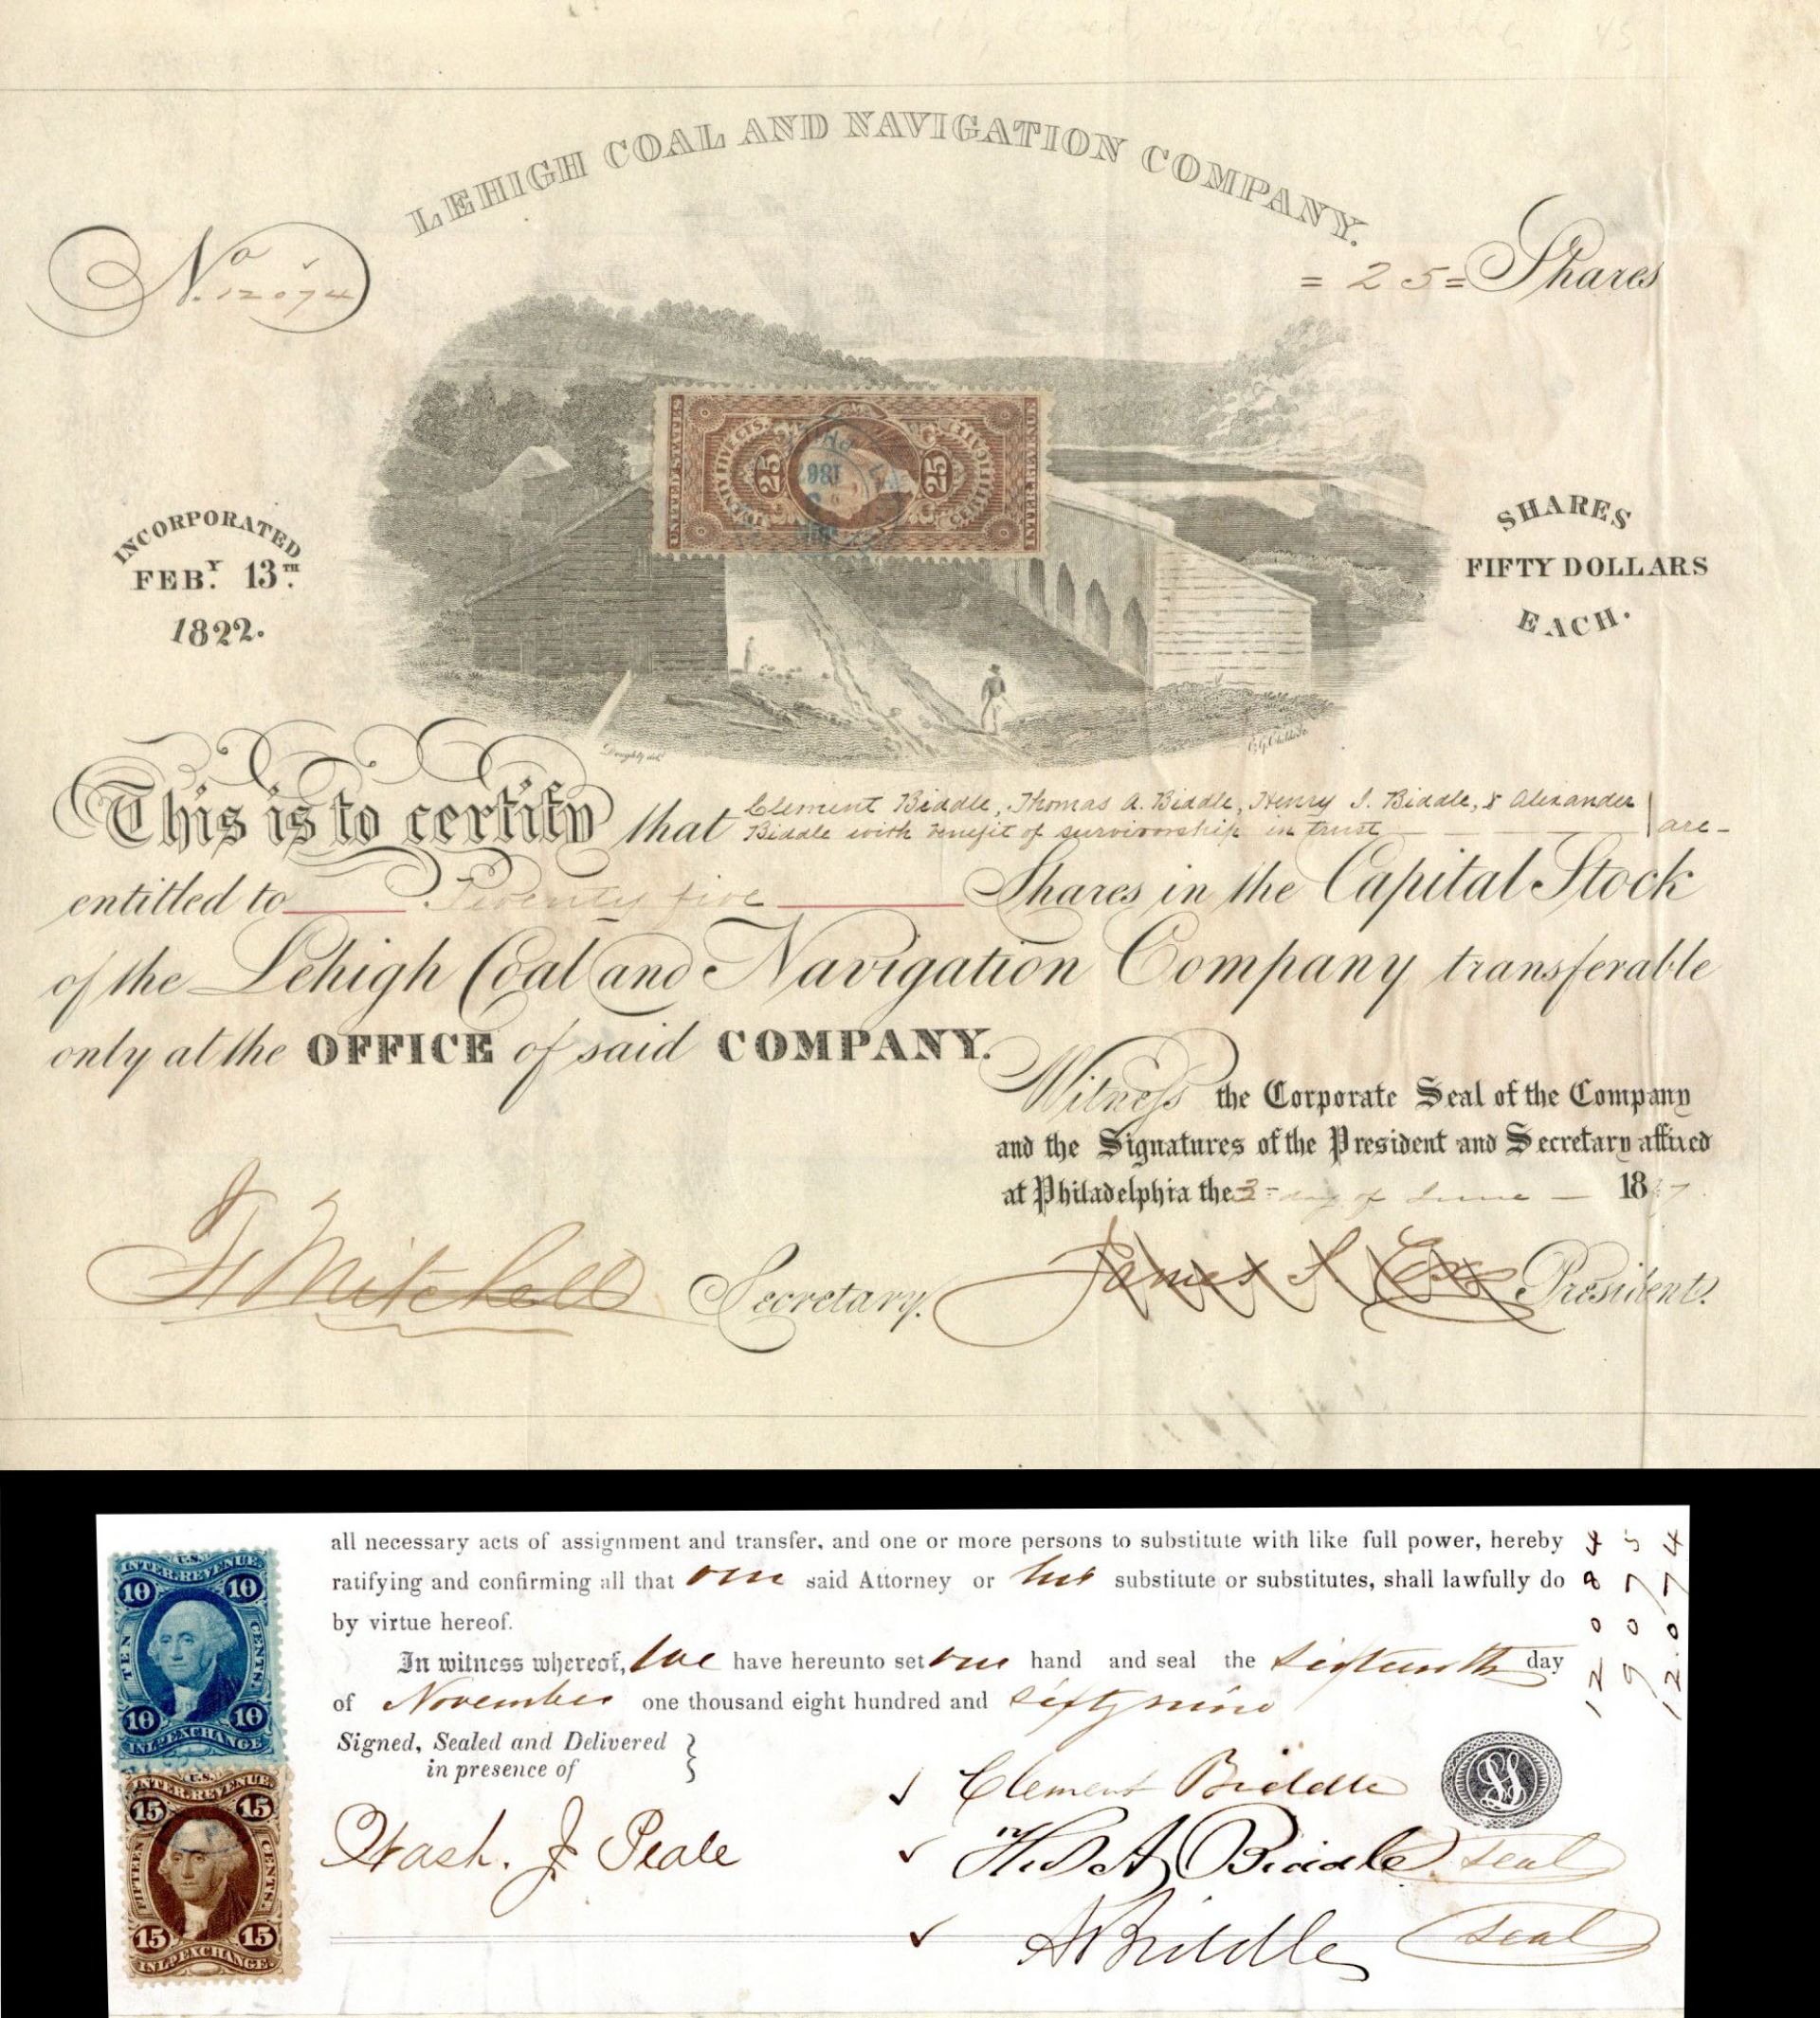 LEHIGH COAL AND NAVIGATION COMPANY.
No. 12074
= 25 = Shares
UNITED STATES
TWENTY FIVE CTS.
25
25
CERTIFICATE
INTER. REVENUE
186
INCORPORATED
FEBY. 13TH.
1822.
SHARES
FIFTY DOLLARS
EACH.
Doughty del.
This is to certify that Clement Biddle, Thomas A. Biddle, Henry J. Biddle, & Alexander
Biddle with benefit of survivorship in trust are
entitled to Twenty five Shares in the Capital Stock
of the Lehigh Coal and Navigation Company transferable
only at the OFFICE of said COMPANY.
Witness the Corporate Seal of the Company
and the Signatures of the President and Secretary affixed
at Philadelphia the 3 day of June 1867
F Mitchell Secretary. James S. Cox President.
all necessary acts of assignment and transfer, and one or more persons to substitute with like full power, hereby
ratifying and confirming all that our said Attorney or his substitute or substitutes, shall lawfully do
by virtue hereof.
In witness whereof, we have hereunto set our hand and seal the sixteenth day
of November one thousand eight hundred and sixty nine
Signed, Sealed and Delivered
in presence of
Clement Biddle
LS
Wash. J. Peale
Thos A Biddle seal
A Biddle seal
12084
9075
12.074
U.S.
INTER. REVENUE
10 10
TEN CENTS.
10 10
INL. EXCHANGE
U.S.
INTER. REVENUE
15 15
FIFTEEN CENTS.
15 15
INL. EXCHANGE